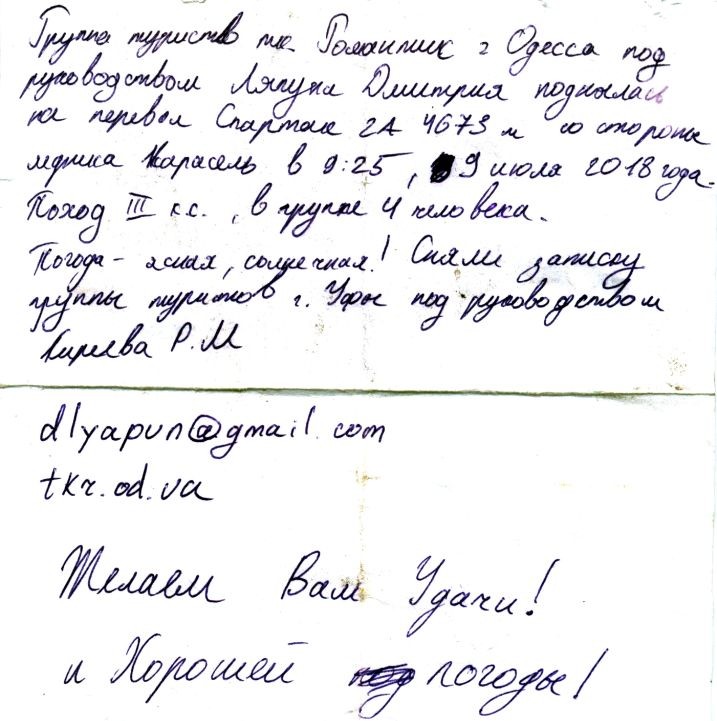 Группа туристов тк. Романтик г Одесса под
руководством Ляпуна Дмитрия поднялась
на перевал Спартак 2А 4673 м со стороны
ледника Карасель в 9:25, 9 июля 2018 года.
Поход III к.с., в группе 4 человека.
Погода - ясная, солнечная! Сняли записку
группы туристов г. Уфы под руководством
Киреева Р.М
dlyapun@gmail.com
tkr.od.ua
Желаем Вам Удачи!
и Хорошей погоды!